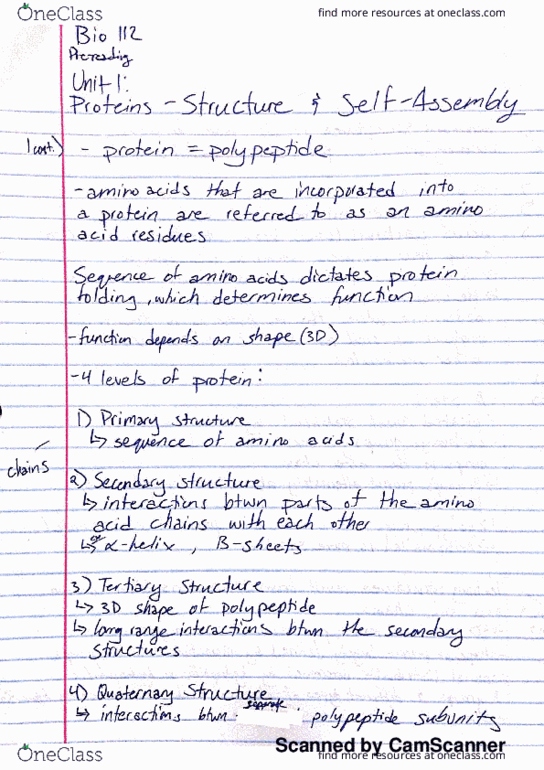 OneClass
find more resources at oneclass.com
Bio 112
Prereading
Unit 1:
Proteins - Structure & Self-Assembly
- protein = polypeptide
- amino acids that are incorporated into
a protein are referred to as an amino
acid residues
Sequence of amino acids dictates protein
folding, which determines function
- function depends on shape (3D)
- 4 levels of protein:
1) Primary structure
↳ sequence of amino acids
chains
2) Secondary structure
↳ interactions btwn parts of the amino
acid chains with each other
↳ α-helix, B-sheets
3) Tertiary Structure
↳ 3D shape of polypeptide
↳ long range interactions btwn the secondary
structures
4) Quaternary Structure
↳ interactions btwn separate polypeptide subunits
Scanned by CamScanner
OneClass
find more resources at oneclass.com